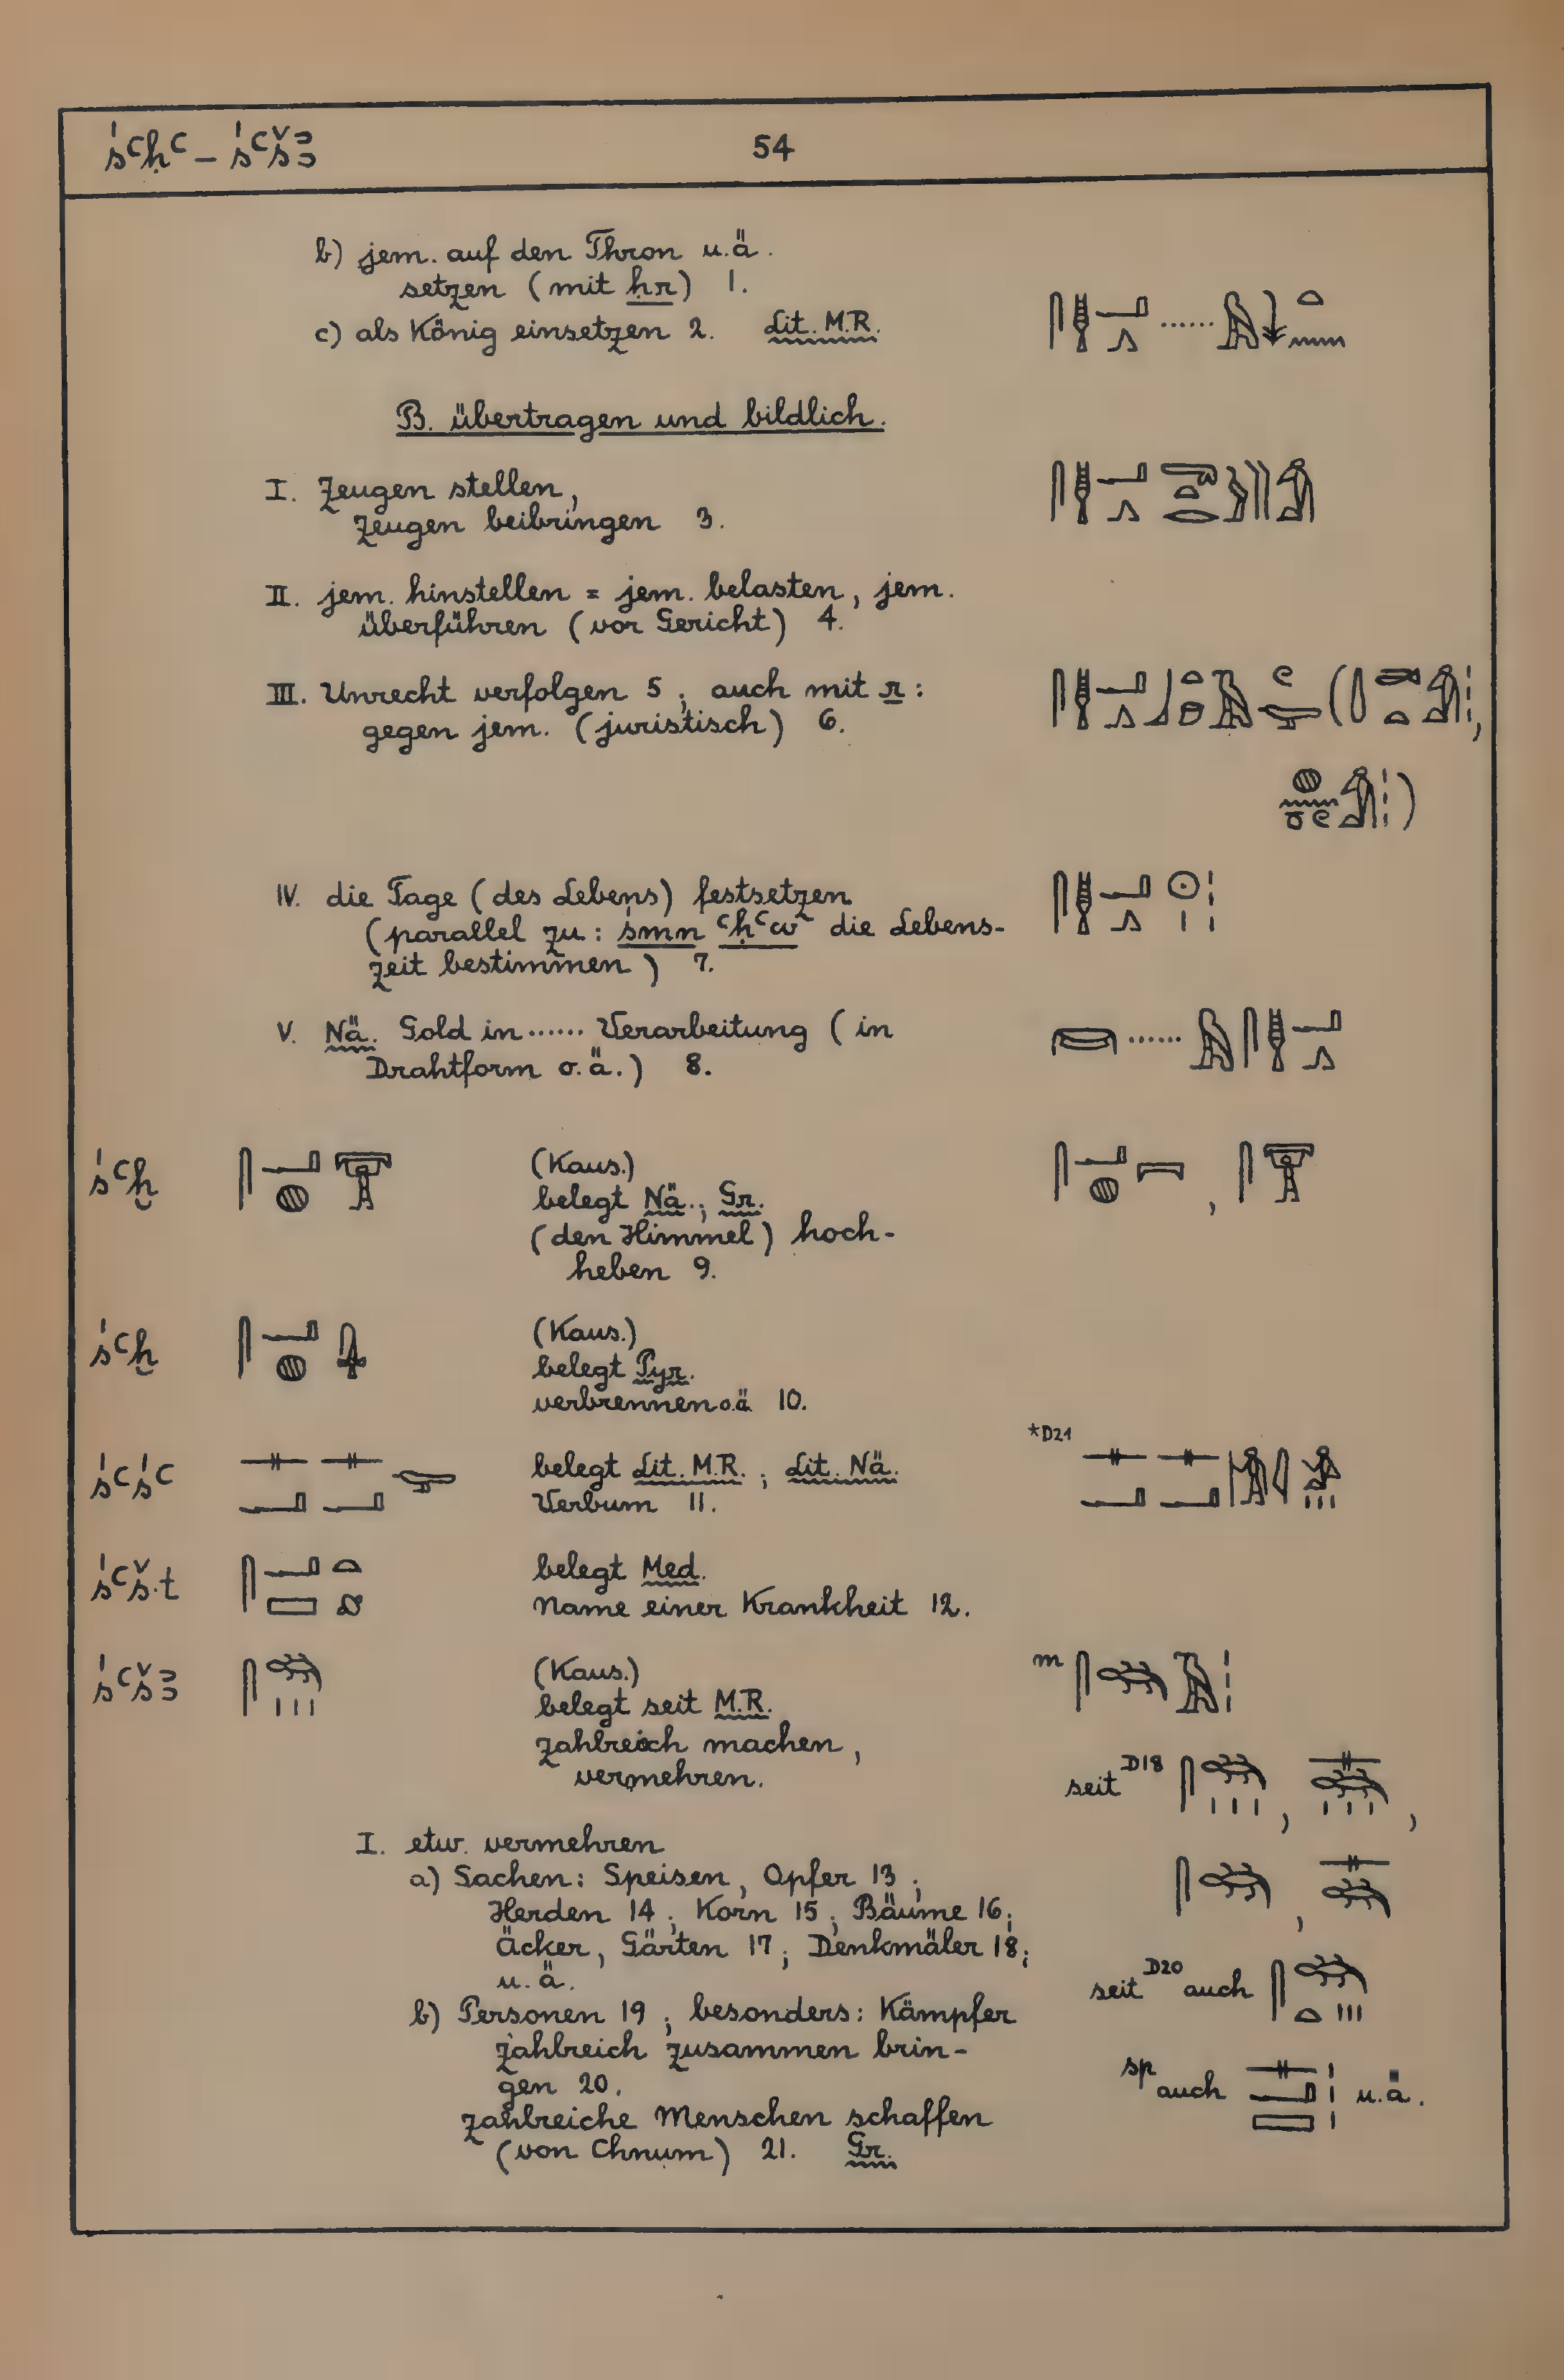 śꜥ̱ḥꜥ – śꜥš3 54
b) jem. auf den Thron u.ä.
setzen (mit ḥr) 1.
c) als König einsetzen 2. Lit. M.R.
B. übertragen und bildlich.
I. Zeugen stellen,
Zeugen beibringen 3.
II. jem. hinstellen = jem. belasten, jem.
überführen (vor Gericht) 4.
III. Unrecht verfolgen 5; auch mit r:
gegen jem. (juristisch) 6.
IV. die Tage (des Lebens) festsetzen
(parallel zu: śmn ꜥḥꜥw die Lebens-
zeit bestimmen) 7.
V. Nä. Gold in ...... Verarbeitung (in
Drahtform o.ä.) 8.
śꜥḫ (Kaus.)
belegt Nä.; Gr.
(den Himmel) hoch-
heben 9.
śꜥḫ (Kaus.)
belegt Pyr.
verbrennen o.ä. 10.
śꜥśꜥ belegt Lit. M.R.; Lit. Nä. *D21
Verbum 11.
śꜥš.t belegt Med.
Name einer Krankheit 12.
śꜥš3 (Kaus.) m
belegt seit M.R.
zahlreich machen,
vermehren. seit D18
I. etw. vermehren
a) Sachen: Speisen, Opfer 13;
Herden 14; Korn 15; Bäume 16;
Äcker, Gärten 17; Denkmäler 18;
u.ä. seit D20 auch
b) Personen 19; besonders: Kämpfer
zahlreich zusammen brin-
gen 20. sp auch u.ä.
zahlreiche Menschen schaffen
(von Chnum) 21. Gr.